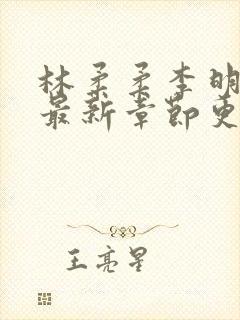 林柔柔李明
最新章节更
王亮星